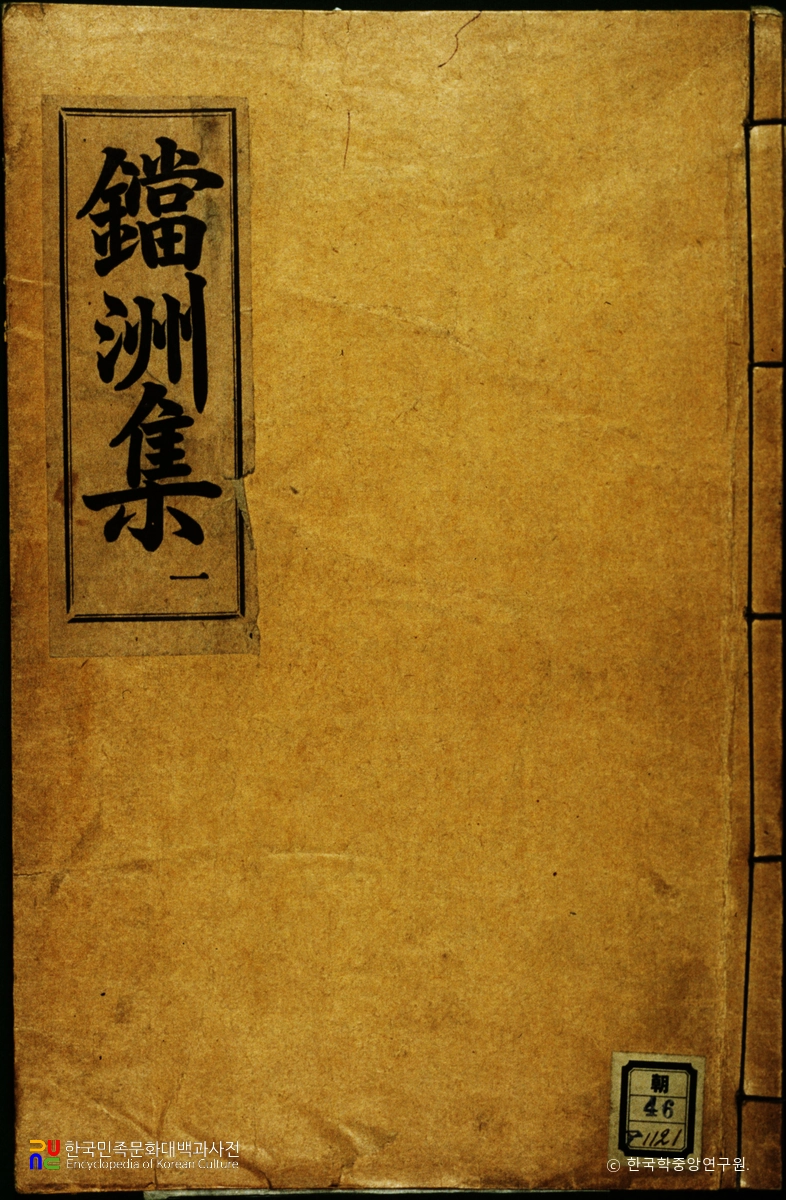 鐺洲集
一
朝
46
P1121
한국민족문화대백과사전
Encyclopedia of Korean Culture
© 한국학중앙연구원.